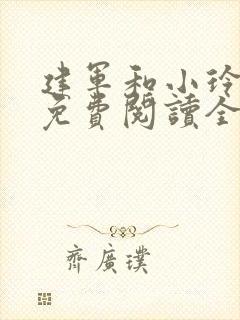 建军和小玲
免費閱讀全
齊廣璞